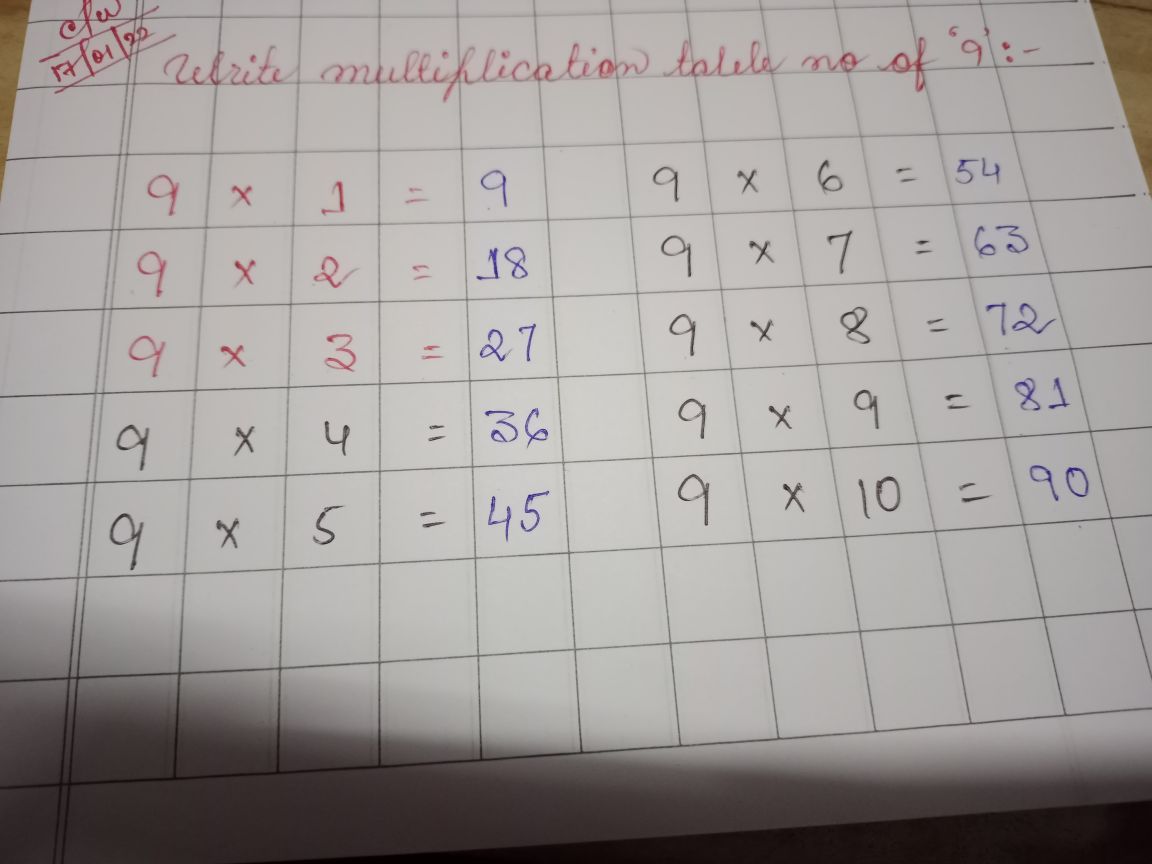 C/W
17/01/22
Write multiplication table no of '9':-
9 × 1 = 9
9 × 2 = 18
9 × 3 = 27
9 × 4 = 36
9 × 5 = 45
9 × 6 = 54
9 × 7 = 63
9 × 8 = 72
9 × 9 = 81
9 × 10 = 90